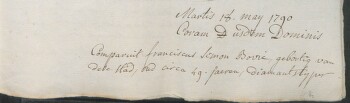 Martis 18. may 1790
Coram iisdem Dominis
Compareert franciscus Simon Bovie, geboortig van
dese stad, oud circa 49. jaeren, diamantslyper